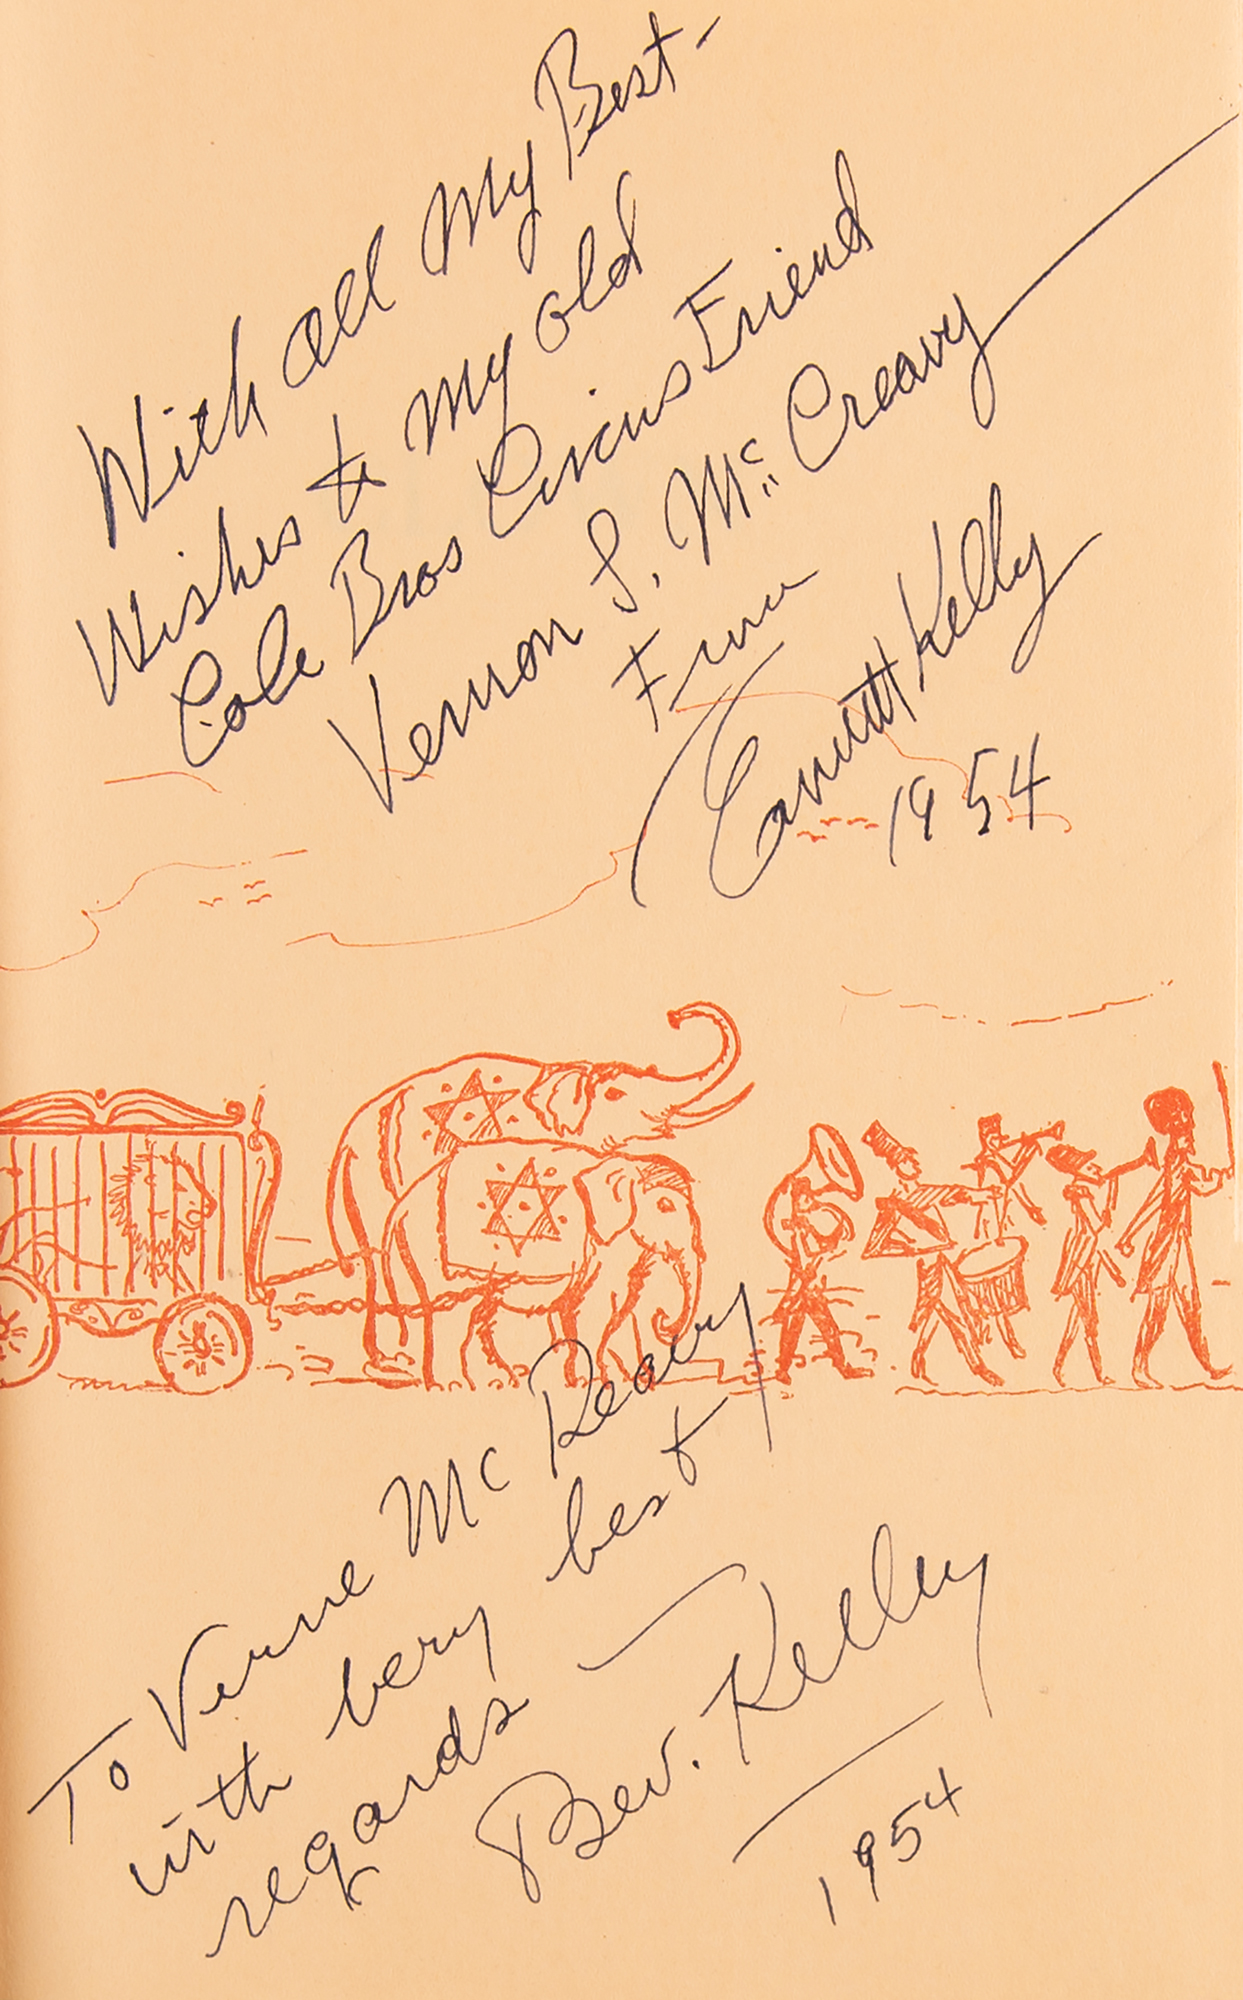 With all My Best-
Wishes to My old
Cole Bros Circus Friend
Vernon L. Mc Creavy
From
Emmett Kelly
1954
To Verne Mc Reavy
with very best
regards —
Bev. Kelley
1954